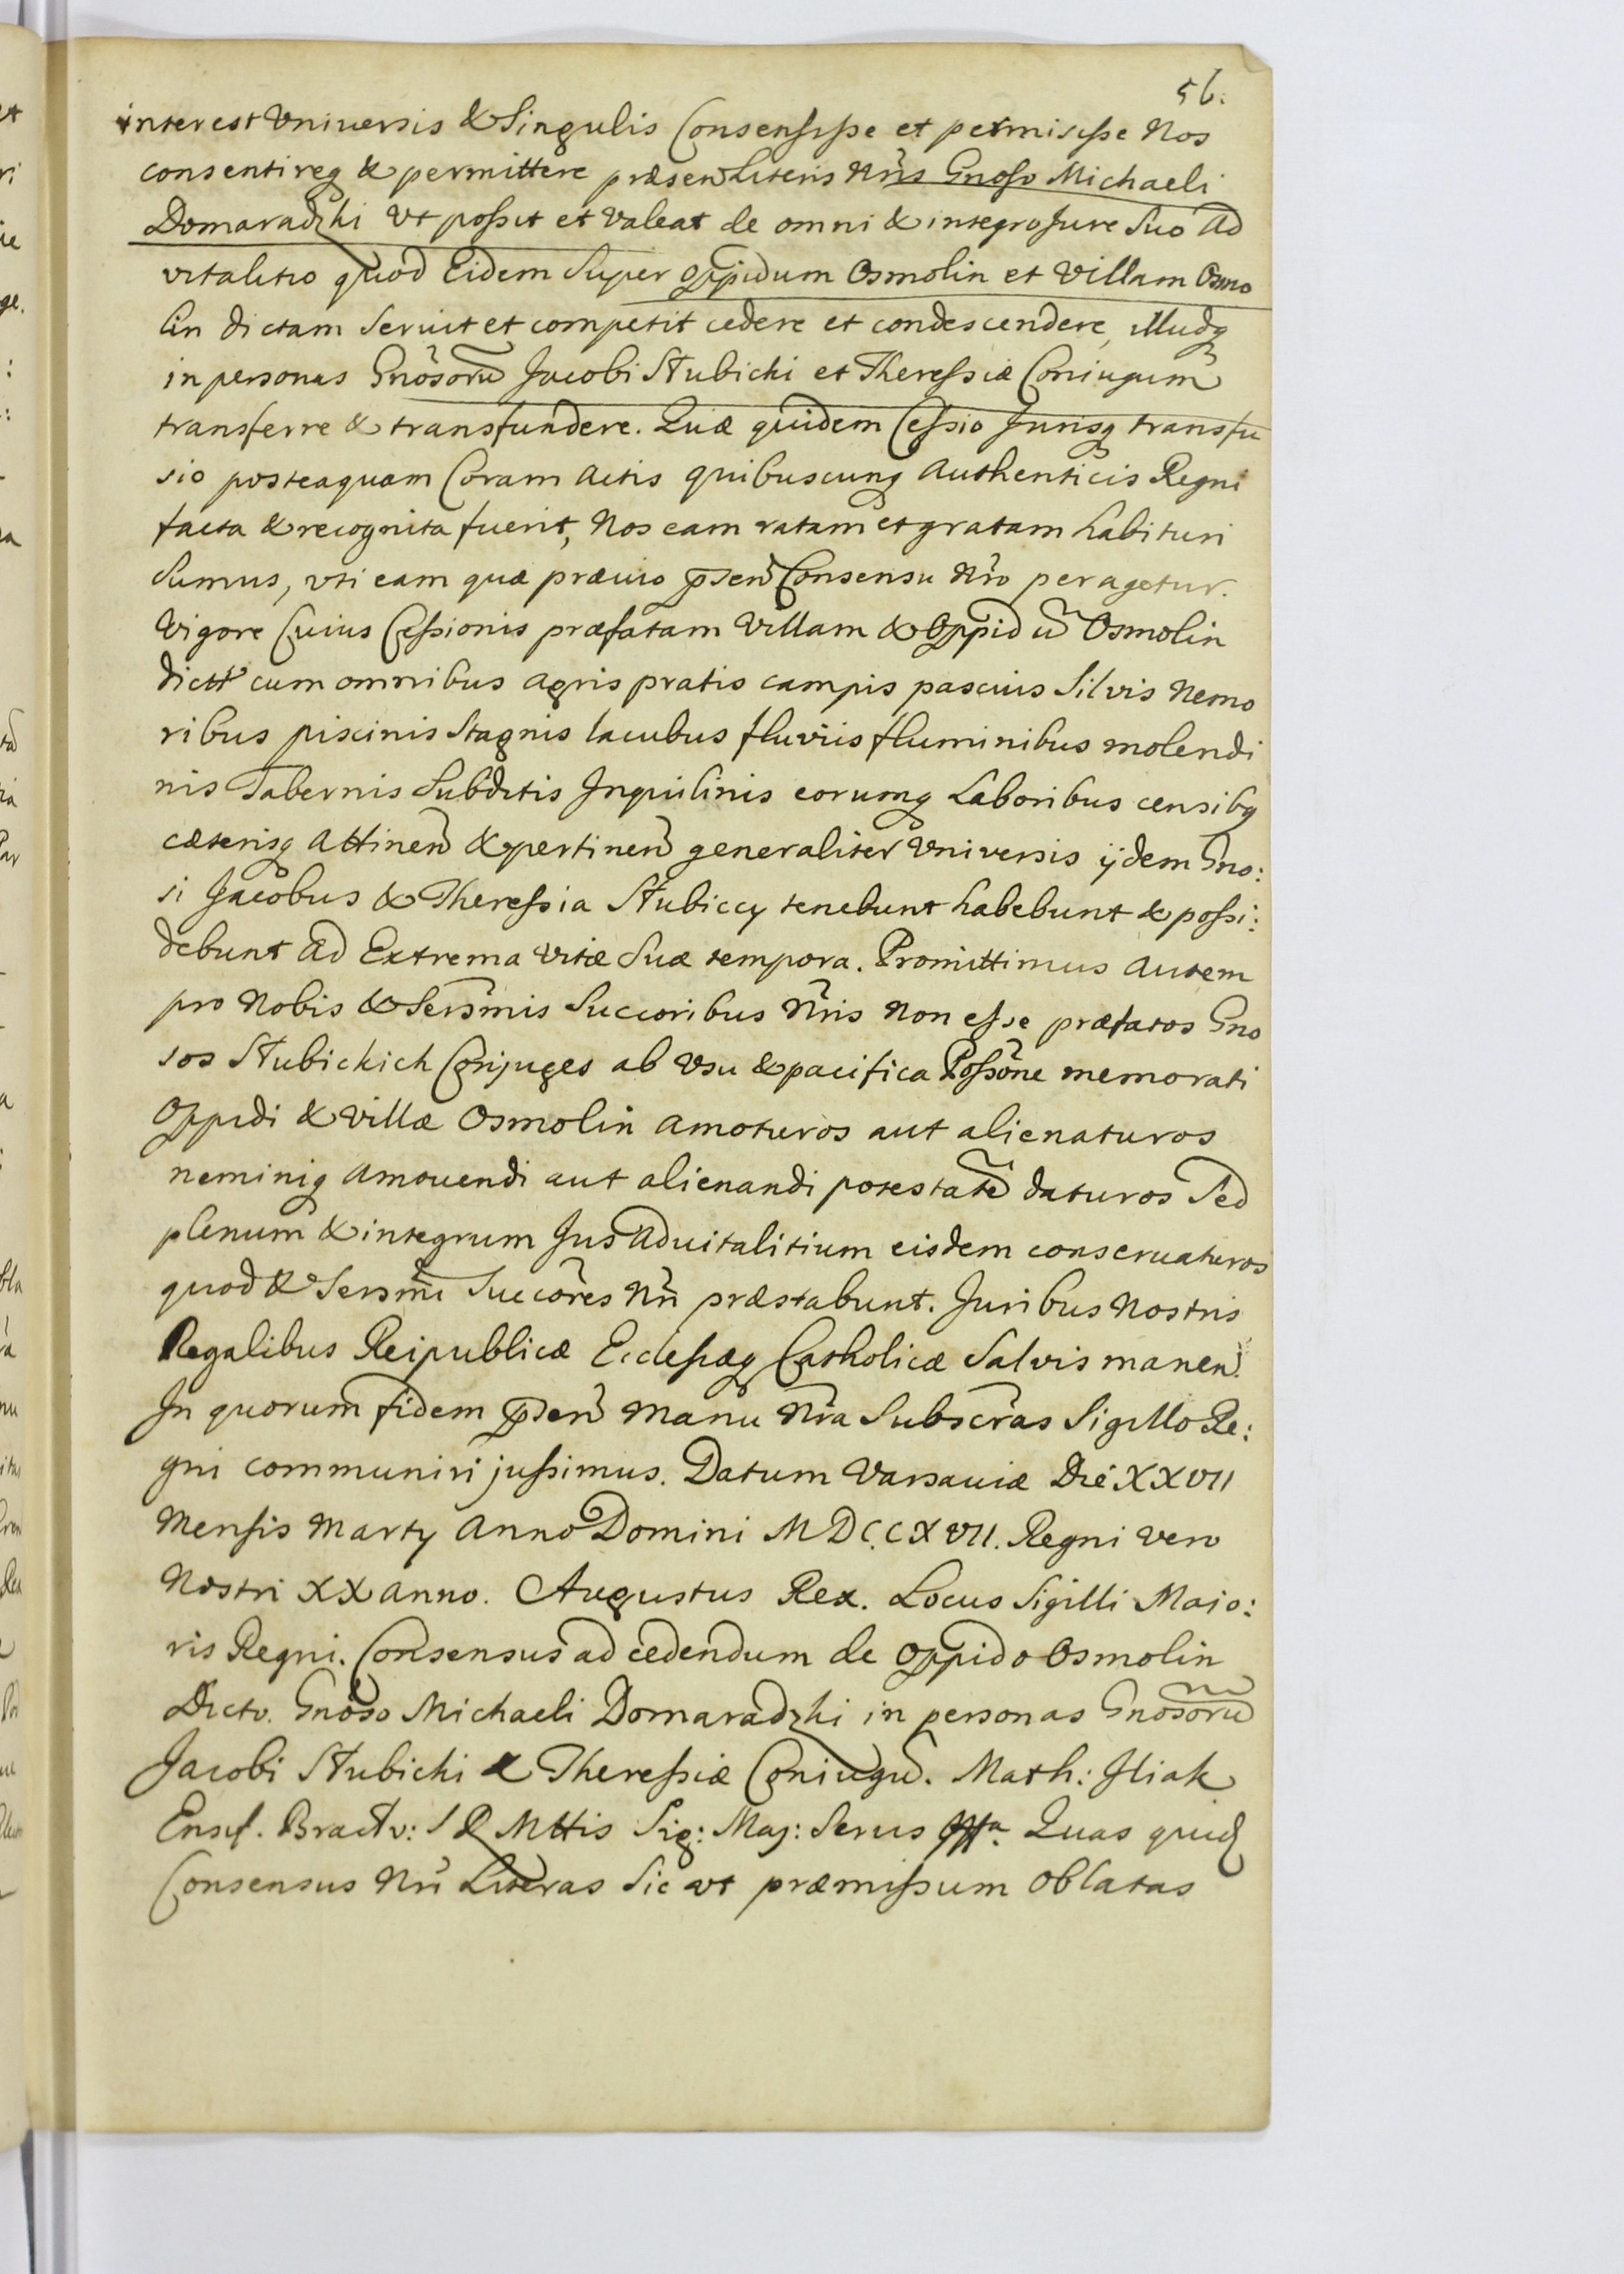 56.
interest Universis & Singulis Consensisse et permisisse Nos
consentireq & permittere præsen Literis Nris Gnoso Michaeli
Domaradzki Ut possit et valeat de omni & integro Jure Suo Ad
vitalitio quod Eidem Super Oppidum Osmolin et Villam Osmo
lin dictam Servit et competit cedere et condescendere, illudq
in personas Gnosoru Jacobi Stubicki et Theressiæ Coniugum
transferre & transfundere. Quæ quidem Cessio Jurisq transfu
sio posteaquam Coram Actis quibuscunq Authenticis Regni
facta & recognita fuerit, Nos eam ratam et gratam habituri
Sumus, uti eam quæ prævio psen Consensu Nro peragetur.
Vigore Cuius Cessionis præfatam Villam & Oppidu Osmolin
dictt cum omnibus agris pratis campis pascuis Silvis Nemo
ribus piscinis Stagnis lacubus fluviis fluminibus molendi
nis Tabernis Subditis Inquilinis eorumq Laboribus censibq
cæterisq Attinen & pertinen generaliter Universis ijdem Gno:
si Jacobus & Theressia Stubiccy tenebunt habebunt & possi:
debunt ad Extrema Vitæ Suæ tempora. Promittimus Autem
pro Nobis & Sersmis Succoribus Nris Non esse præfatos Gno
sos Stubickich Conjuges ab Usu & pacifica Possone memorati
Oppidi & Villæ Osmolin amoturos aut alienaturos
neminiq amovendi aut alienandi potestate daturos Sed
plenum & integrum Jus Advitalitium eisdem conservaturos
quod & Sersmi Succores Nri præstabunt. Juribus Nostris
Regalibus Reipublicæ Ecclesiæq Catholicæ Salvis manen.
In quorum fidem psen Manu Nra Subscras Sigillo Re:
gni communiri jussimus. Datum Varsaviæ Die XXVII
Mensis Marty Anno Domini MDCCXVII. Regni vero
Nostri XX anno. Augustus Rex. Locus Sigilli Maio:
ris Regni. Consensus ad cedendum de Oppido Osmolin
Dicto. Gnoso Michaeli Domaradzki in personas Gnosoru
Jacobi Stubicki & Theressiæ Coniugu. Math: Iliak
Ensif. Bractv: S R Mttis Sig: Maj: Serus Quas quid
Consensus Nri Literas Sic ut præmissum Oblatas